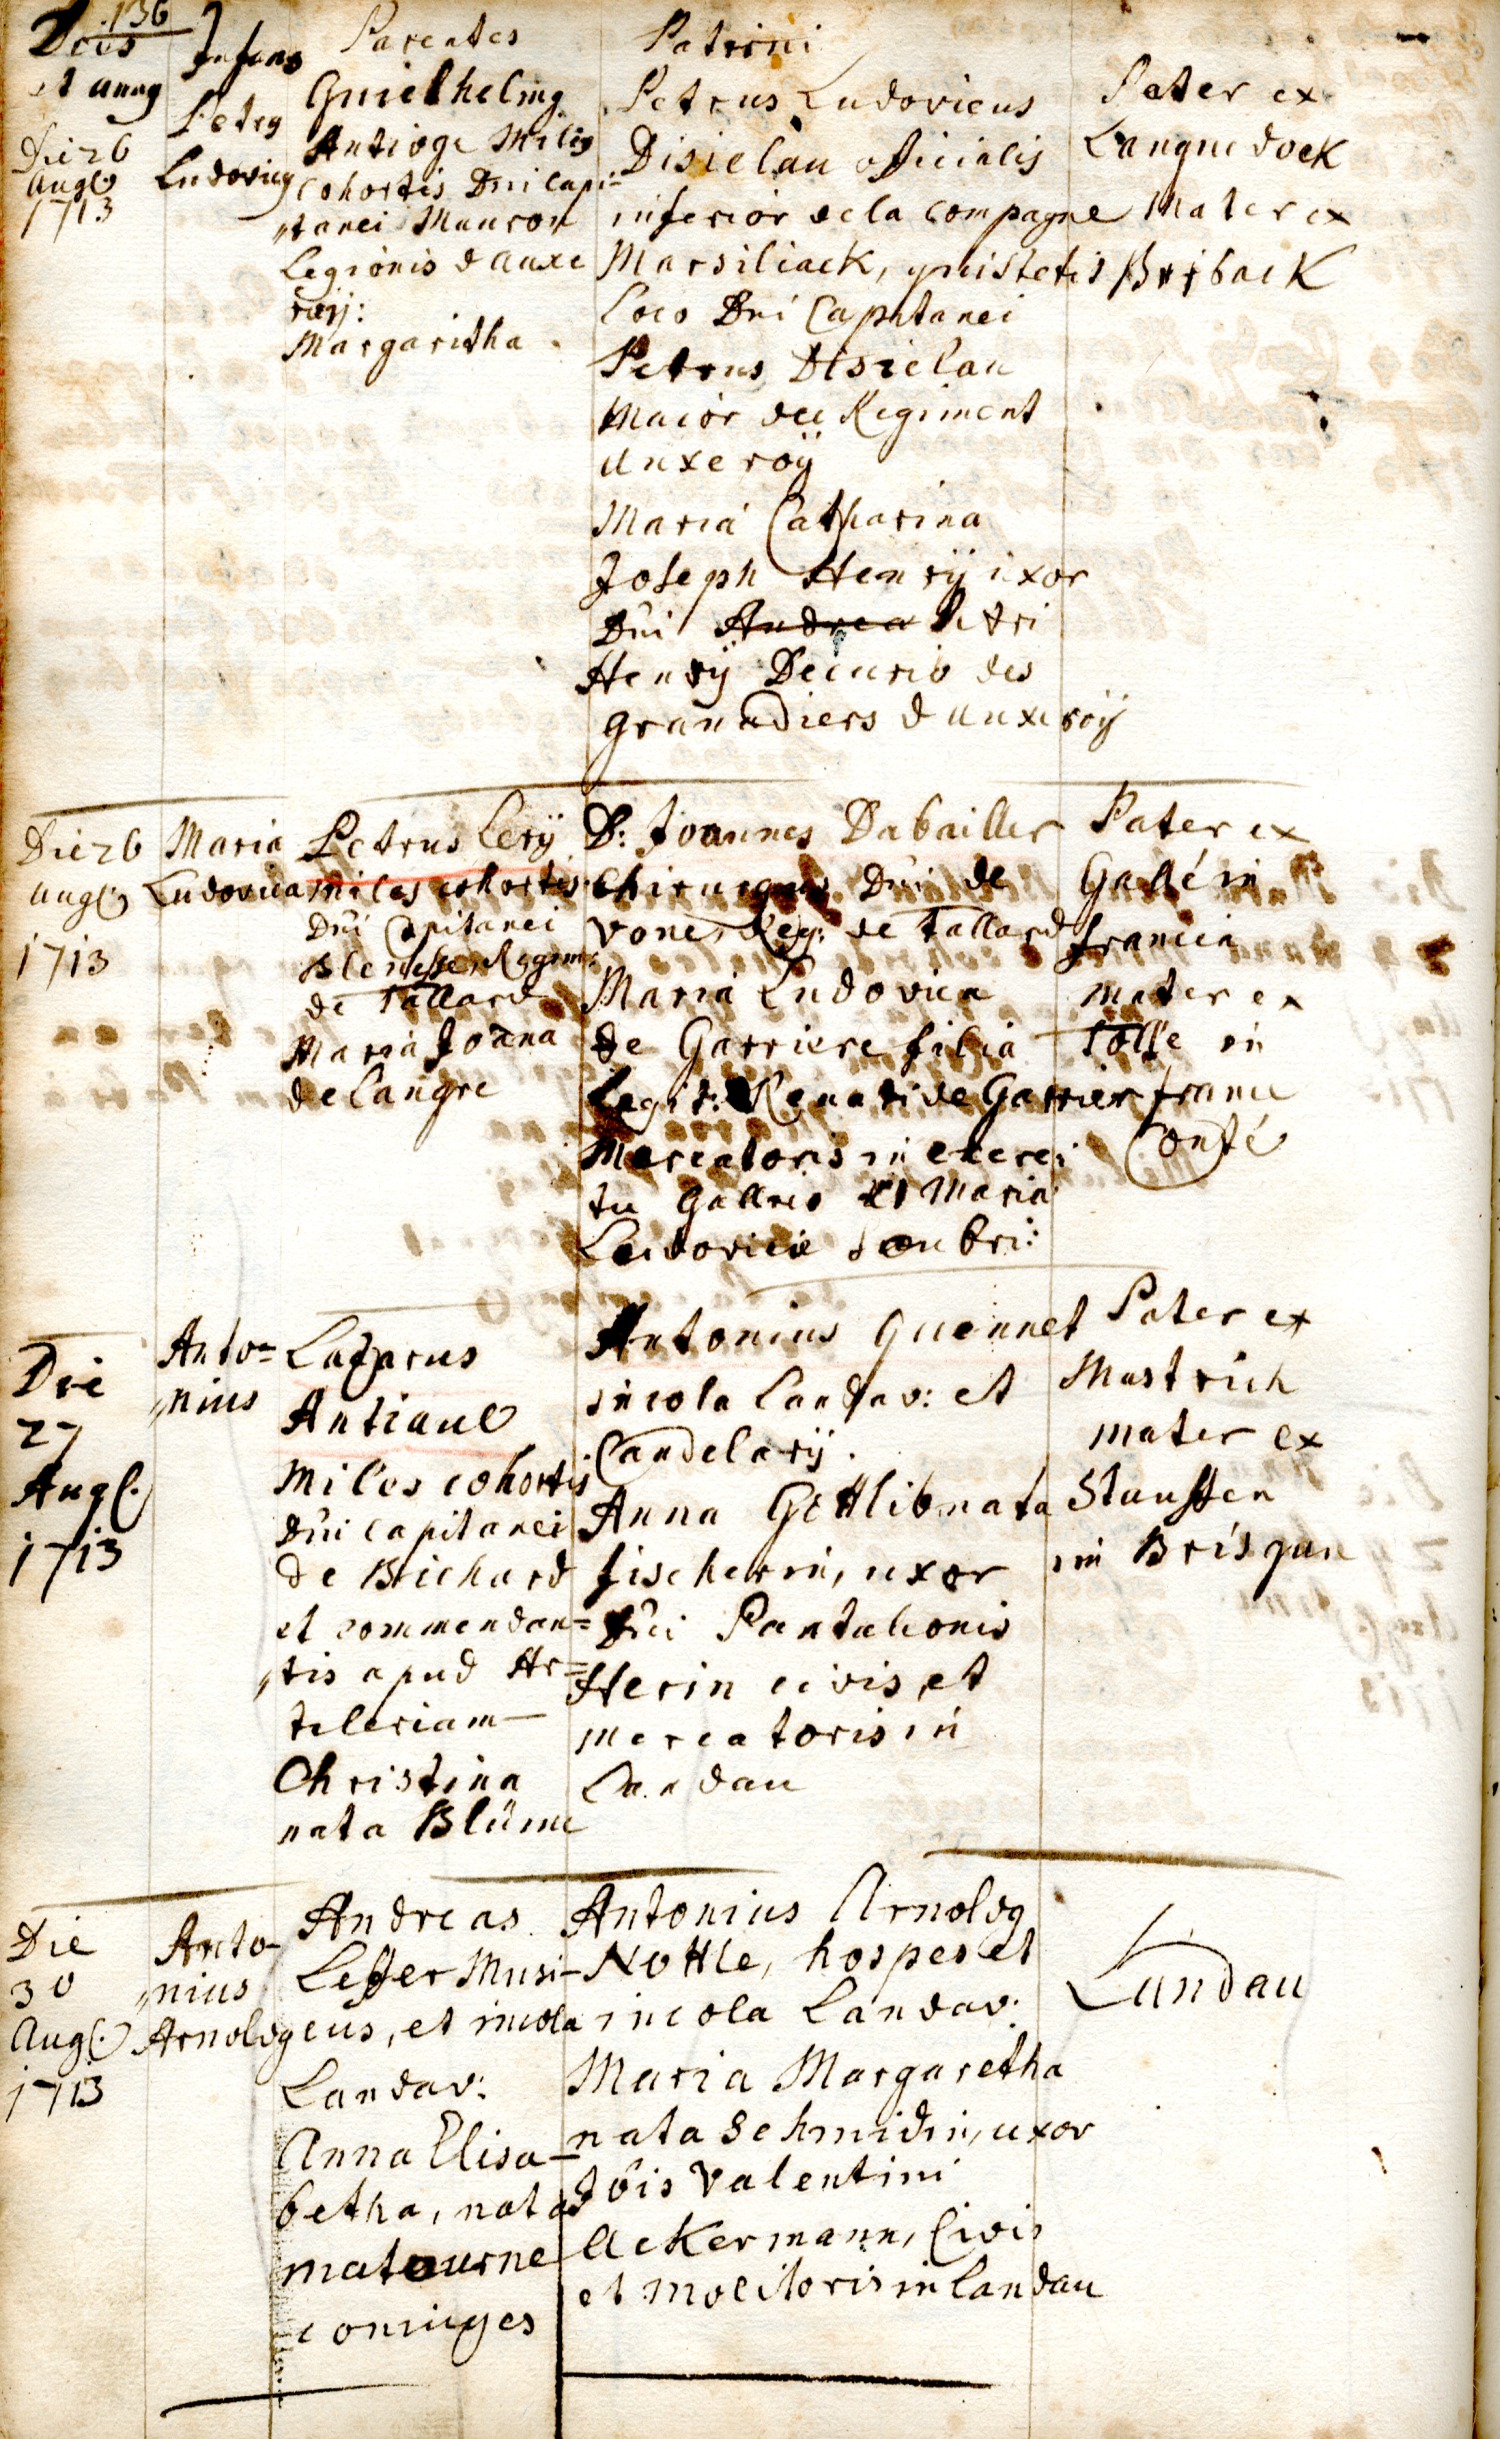 136
Dies
et anng
Infans
Parentes
Patrini
Die 26
Augl
1713
Petrg
Ludovicg
Guielhelmg
Antioge Milis
Cohortis Dni Capi=
„tanei Mauron
Legionis d auxe
roij:
Margaritha
Petrus Ludovicus
Disielau oficialis
inferior de la compagne
Marsiliack, qui stetit
Loco Dni Capitanei
Petrus Disielau
Maior de Regiment
Auxeroÿ
Maria Catharina
Joseph Henrÿ uxor
Dni Andrea Petri
Henrÿ Decurio des
Granadiers d auxeroÿ
Pater ex
Languedock
Mater ex
Briback
Die 26
Augl
1713
Maria
Ludovica
Petrus Cerÿ
miles cohortis
Dni Capitanei
Regim:
de Tallard
Maria Joana
de Langre
D: Joannes Dabailler
Chirurgus Dni de
vone, Reg: de Tallard
Maria Ludovica
de Garriere filia
Legit: Renati de Garrier
Mercatoris in exerci
tu Gallris et Maria
Ludovicie
Pater ex
Gallé in
francia
mater ex
Tolle in
franc
Conté
Die
27
Augl.
1713
Anto=
„nius
Lazarus
Antiaul
Miles cohortis
Dni capitanei
de Brichard
et commendan=
„tis apud Ar=
tileriam
Christina
nata Blüme
Antonius Guennet
incola Landav: et
Candelarÿ.
Anna Gottlib nata
fischerin, uxor
Dni Pantaleonis
Herin civis, et
mercatoris in
Landau
Pater ex
Mastrich
mater ex
Stauffen
im Brisgau
Die
30
Augl.
1713
Anto-
„nius
Arnoldg
Andreas
Leffer Musi-
cus, et incola
Landav:
Anna Elisa-
betha, nata
matourne
coniuges
Antonius Arnoldg
Nottle, hospes et
incola Landav:
Maria Margaretha
nata Schmidin, uxor
Jōis Valentini
Ackermann, Civis
et Molitoris in Landau
Landau